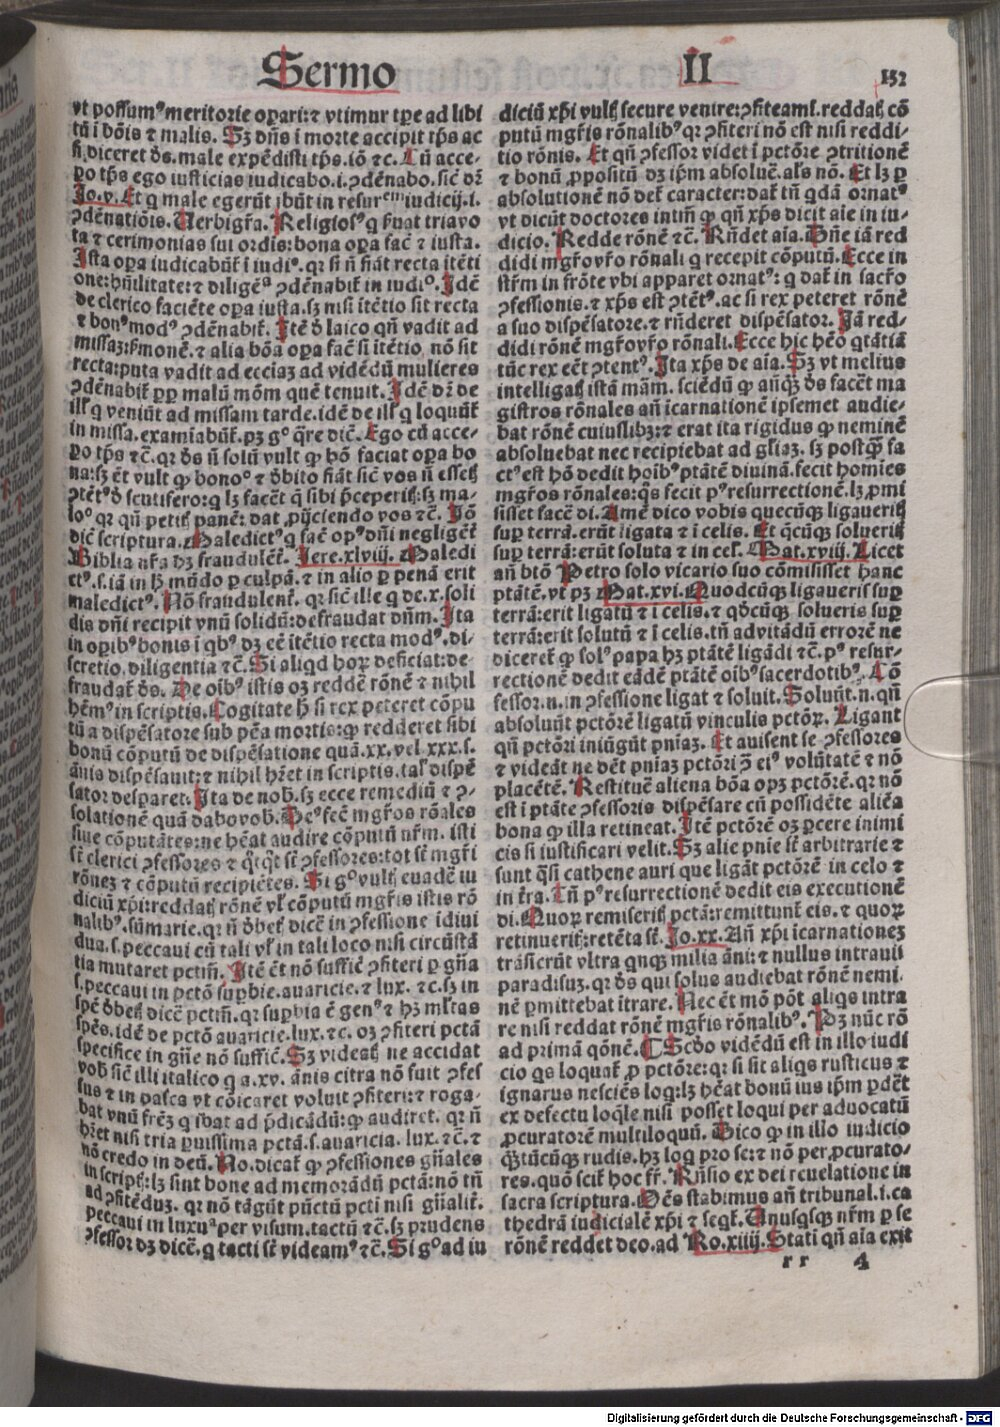 Sermo II 152
vt possumꝰ meritorie oꝑari: ⁊ vtimur tꝑe ad libi
tū ĩ bōis ⁊ malis. Sꝫ dñs ĩ morte accipit tꝑs ac
si diceret ds. male expēdisti tꝑs. iō ⁊c. Cū acce-
ꝑo tꝑs ego iusticias iudicabo. i. ꝯdēnabo. sic dr
Jo. v. Et q male egerūt ibūt in resurem iudicij. i.
ꝯdēnatiōis. Religiosꝰ q
ta ⁊ cerimonias sui ordis: bona oꝑa fac ⁊ iusta.
Ista oꝑa iudicabūt ĩ iudiꝰ. qr si ñ fiāt recta ĩtēti
one: hūilitate: ⁊ diligē ꝯdēnabit in iudiꝰ. Idē
de clerico faciēte oꝑa iusta. sꝫ nisi itētio sit recta
⁊ bonꝰ modꝰ ꝯdēnabit. Itē d laico qñ vadit ad
⁊ alia bōa oꝑa fac si itētio nō sit
recta: puta vadit ad ecciaꝫ ad vidēdū mulieres
ꝯdēnabit ꝓp malū mōm quē tenuit. Idē dr de
ill q veniūt ad missam tarde. idē de ill q loquūt
in missa. examiabūt. pꝫ gꝰ qre dic. Ego cū acce-
ꝑo tꝑs ⁊c. qr ds ñ solū vult ꝙ hō faciat oꝑa bo
na: sꝫ ēt vult ꝙ bonoꝰ ⁊ dbito fiāt sic vos ñ esset
ꝯtētꝰ d scutifero: q lꝫ facēt q sibi pceperit: sꝫ ma-
loꝰ qr qñ petit panē: dat ꝓijciendo vos ⁊c. Iō
dic scriptura. Maledictꝰ q fac opꝰ dñi negligēt
Biblia nra hꝫ fraudulēt. Jere. xlviij. Maledi
ctꝰ. s. iā in h mūdo ꝑ culpā. ⁊ in alio ꝑ penā erit
maledictꝰ. Nō fraudulent. qr sic ille q de. x. soli
dis dñi recipit vnū solidū: defraudat dñm. Ita
in oꝑibꝰ bonis ĩ qbꝰ dꝫ eē itētio recta modꝰ. di-
scretio. diligentia ⁊c. Si aliqd hoꝝ deficiat: de-
fraudat ds. De oibꝰ istis oꝫ reddē rōnē ⁊ nihil
hēmꝰ in scriptis. Cogitate h si rex peteret cōpu
tū a dispēsatore sub pēa mortis: ꝙ redderet sibi
bonū cōputū de dispēsatione quā. xx. vel. xxx. s.
ānis dispēsauit: ⁊ nihil hret in scriptis. tal dispē
sator desꝑaret. Ita de nob. sꝫ ecce remediū ⁊ ꝯ-
solationē quā dabo vob. Deꝰ fec mgros rōales
siue cōputātes: ne hēat audire cōputū nrm. isti
st clerici ꝯfessores ⁊ qtqt st ꝯfessores: tot st mgri
rōneꝫ ⁊ cōputū recipiētes. Si gꝰ vult euadē iu
diciū xp̄i: reddat rōnē vl cōputū mgris istis rō
nalibꝰ. sūmarie. qr ñ dbet dicē in ꝯfessione idiui
dua. s. peccaui cū tali vl in tali loco nisi circūstā
tia mutaret pctm. Itē ēt nō suffic ꝯfiteri ꝑ gñа
s. peccaui in pctō suꝑbie. auaricie. ⁊ lux. ⁊c. sꝫ in
spē dbet dicē pctm. qr suꝑbia ē genꝰ ⁊ hꝫ mltas
spēs. idē de pctō auaricie. lux. ⁊c. oꝫ ꝯfiteri pctā
specifice in gñe nō suffic. Sꝫ videat ne accidat
vob sic illi italico q a. xv. ānis citra nō fuit ꝯfes
sus ⁊ in pasca vt cōicaret voluit ꝯfiteri: ⁊ roga-
bat vnū frēꝫ q ibat ad pdicādū: ꝙ audiret. qr ñ
hret nisi tria ꝑuissima pctā. s. auaricia. lux. ⁊c. ⁊
nō credo in deū. No. dicat ꝙ ꝯfessiones gñales
in script: lꝫ sint bone ad memorādū pctā: nō tñ
ad ꝯfitēduꝫ. qr nō tāgūt pūctū pcti nisi gñalit.
peccaui in luxua per visum. tactū ⁊c. sꝫ prudens
ꝯfessor dꝫ dicē. q tacti st videamꝰ ⁊c. Si gꝰ ad iu
diciū xp̄i vult secure venire: ꝯfiteami. reddat cō
putū mgris rōnalibꝰ qr ꝯfiteri nō est nisi reddi-
tio rōnis. Et qñ ꝯfessor videt ĩ pctōre ꝯtritionē
⁊ bonū ꝓpositū dꝫ ipm absoluē. als nō. Et lꝫ ꝑ
absolutionē nō det caracter: dat tñ qdā ornatꝰ
vt dicūt doctores intim ꝙ qñ xp̄s dicit aie in iu-
dicio. Redde rōnē ⁊c. Rñdet aia. Dñe iā red
didi mgro vro rōnali q recepit cōputū. Ecce in
strm in frōte vbi apparet ornatꝰ: q dat in sacro
ꝯfessionis. ⁊ xp̄s est ꝯtētꝰ. ac si rex peteret rōnē
a suo dispēsatore. ⁊ rñderet dispēsator. Iā red-
didi rōnē mgro vro rōnali. Ecce hic hēo qtātiā
tūc rex eēt ꝯtentꝰ. Ita xp̄s de aia. Sꝫ vt melius
intelligat istā mām. sciēdū ꝙ añqꝫ ds facēt ma
gistros rōnales añ incarnationē ipsemet audie-
bat rōnē cuiuslibꝫ: ⁊ erat ita rigidus ꝙ neminē
absoluebat nec recipiebat ad gliaꝫ. sꝫ postqꝫ fa
ctꝰ est hō dedit hoibꝰ ptātē diuinā. fecit homies
mgros rōnales: qs fecit pꝰ resurrectionē. lꝫ ꝓmi
sisset facē di. Amē dico vobis quecūqꝫ ligauerit
suꝑ terrā. erūt ligata ⁊ ĩ celis. Et qcūqꝫ soluerit
suꝑ terrā: erūt soluta ⁊ in cel. Mat. xviij. Licet
añ btō Petro solo vicario suo cōmisisset hanc
ptātē. vt pꝫ Mat. xvi. Quodcūqꝫ ligaueris suꝑ
terrā: erit ligatū ⁊ ĩ celis. ⁊ qdcūqꝫ solueris suꝑ
terrā: erit solutū ⁊ ĩ celis. tñ ad vitādū errorē ne
diceret ꝙ solꝰ papa hꝫ ptātē ligādi ⁊c. pꝰ resur-
rectionē dedit eādē ptātē oibꝰ sacerdotibꝰ. Cō
fessor. n. in ꝯfessione ligat ⁊ soluit. Soluūt. n. qñ
absoluūt pctōrē ligatū vinculis pctōꝝ. Ligant
qñ pctōri iniūgūt pniaꝫ. Et auisent se ꝯfessores
⁊ videāt ne dēt pniaꝫ pctōri ꝯ eiꝰ volūtatē ⁊ nō
placētē. Restituē aliena bōa oꝑꝫ pctōrē. qr nō
est ĩ ptāte ꝯfessoris dispēsare cū possidēte aliēa
bona ꝙ illa retineat. Itē pctōrē oꝫ ꝑcere inimi
cis si iustificari velit. Sꝫ alie pnie st arbitrarie ⁊
sunt qsi cathene auri que ligāt pctōrē in celo ⁊
in tra. Tñ pꝰ resurrectionē dedit eis executionē
di. Quoꝝ remiserit pctā: remittunt eis. ⁊ quoꝝ
retinuerit: retēta st. Jo. xx. Añ xp̄i icarnationeꝫ
trāsierūt vltra qnqꝫ milia āni: ⁊ nullus intrauit
paradisuꝫ. qr ds qui solus audiebat rōnē nemi.
nē ꝑmittebat itrare. Nec ēt mō pōt aliqs intra
re nisi reddat rōnē mgris rōnalibꝰ. Pꝫ nūc rō
ad primā qōnē. Scdo vidēdū est in illo iudi
cio qs loquat ꝓ pctōre: qr si sit aliqs rusticus ⁊
ignarus nesciēs log: lꝫ hēat bonū ius ipm ꝑdēt
ex defectu loqle nisi posset loqui per aduocatū
ꝓcuratorē multiloquū. Dico ꝙ in illo iudicio
qꝫtūcūqꝫ rudis. hꝫ loq pro se: ⁊ nō per ꝓcurato-
res. quō scit hoc fr. Rñsio ex dei reuelatione in
sacra scriptura. Oēs stabimus añ tribunal. i. ca
thedrā iudicialē xp̄i ⁊ seqt. Unusqsqꝫ nrm ꝑ se
rōnē reddet deo. ad Ro. xiiij. Stati qñ aia exit
rr 4
Digitalisierung gefördert durch die Deutsche Forschungsgemeinschaft - DFG